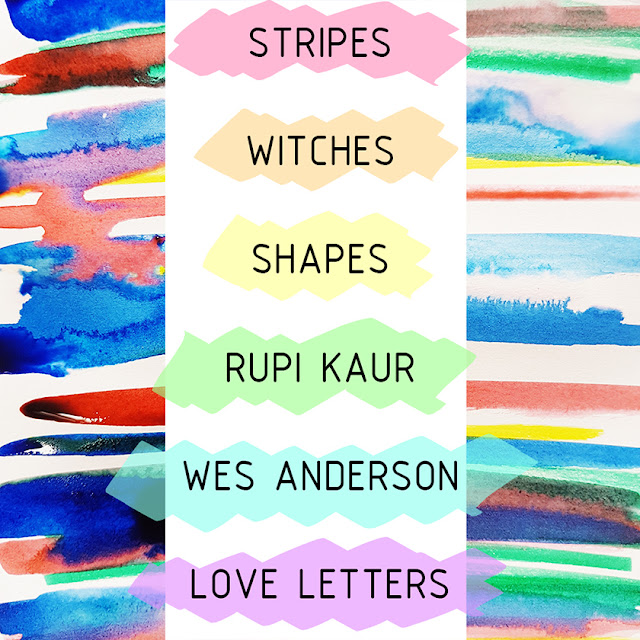 STRIPES
WITCHES
SHAPES
RUPI KAUR
WES ANDERSON
LOVE LETTERS